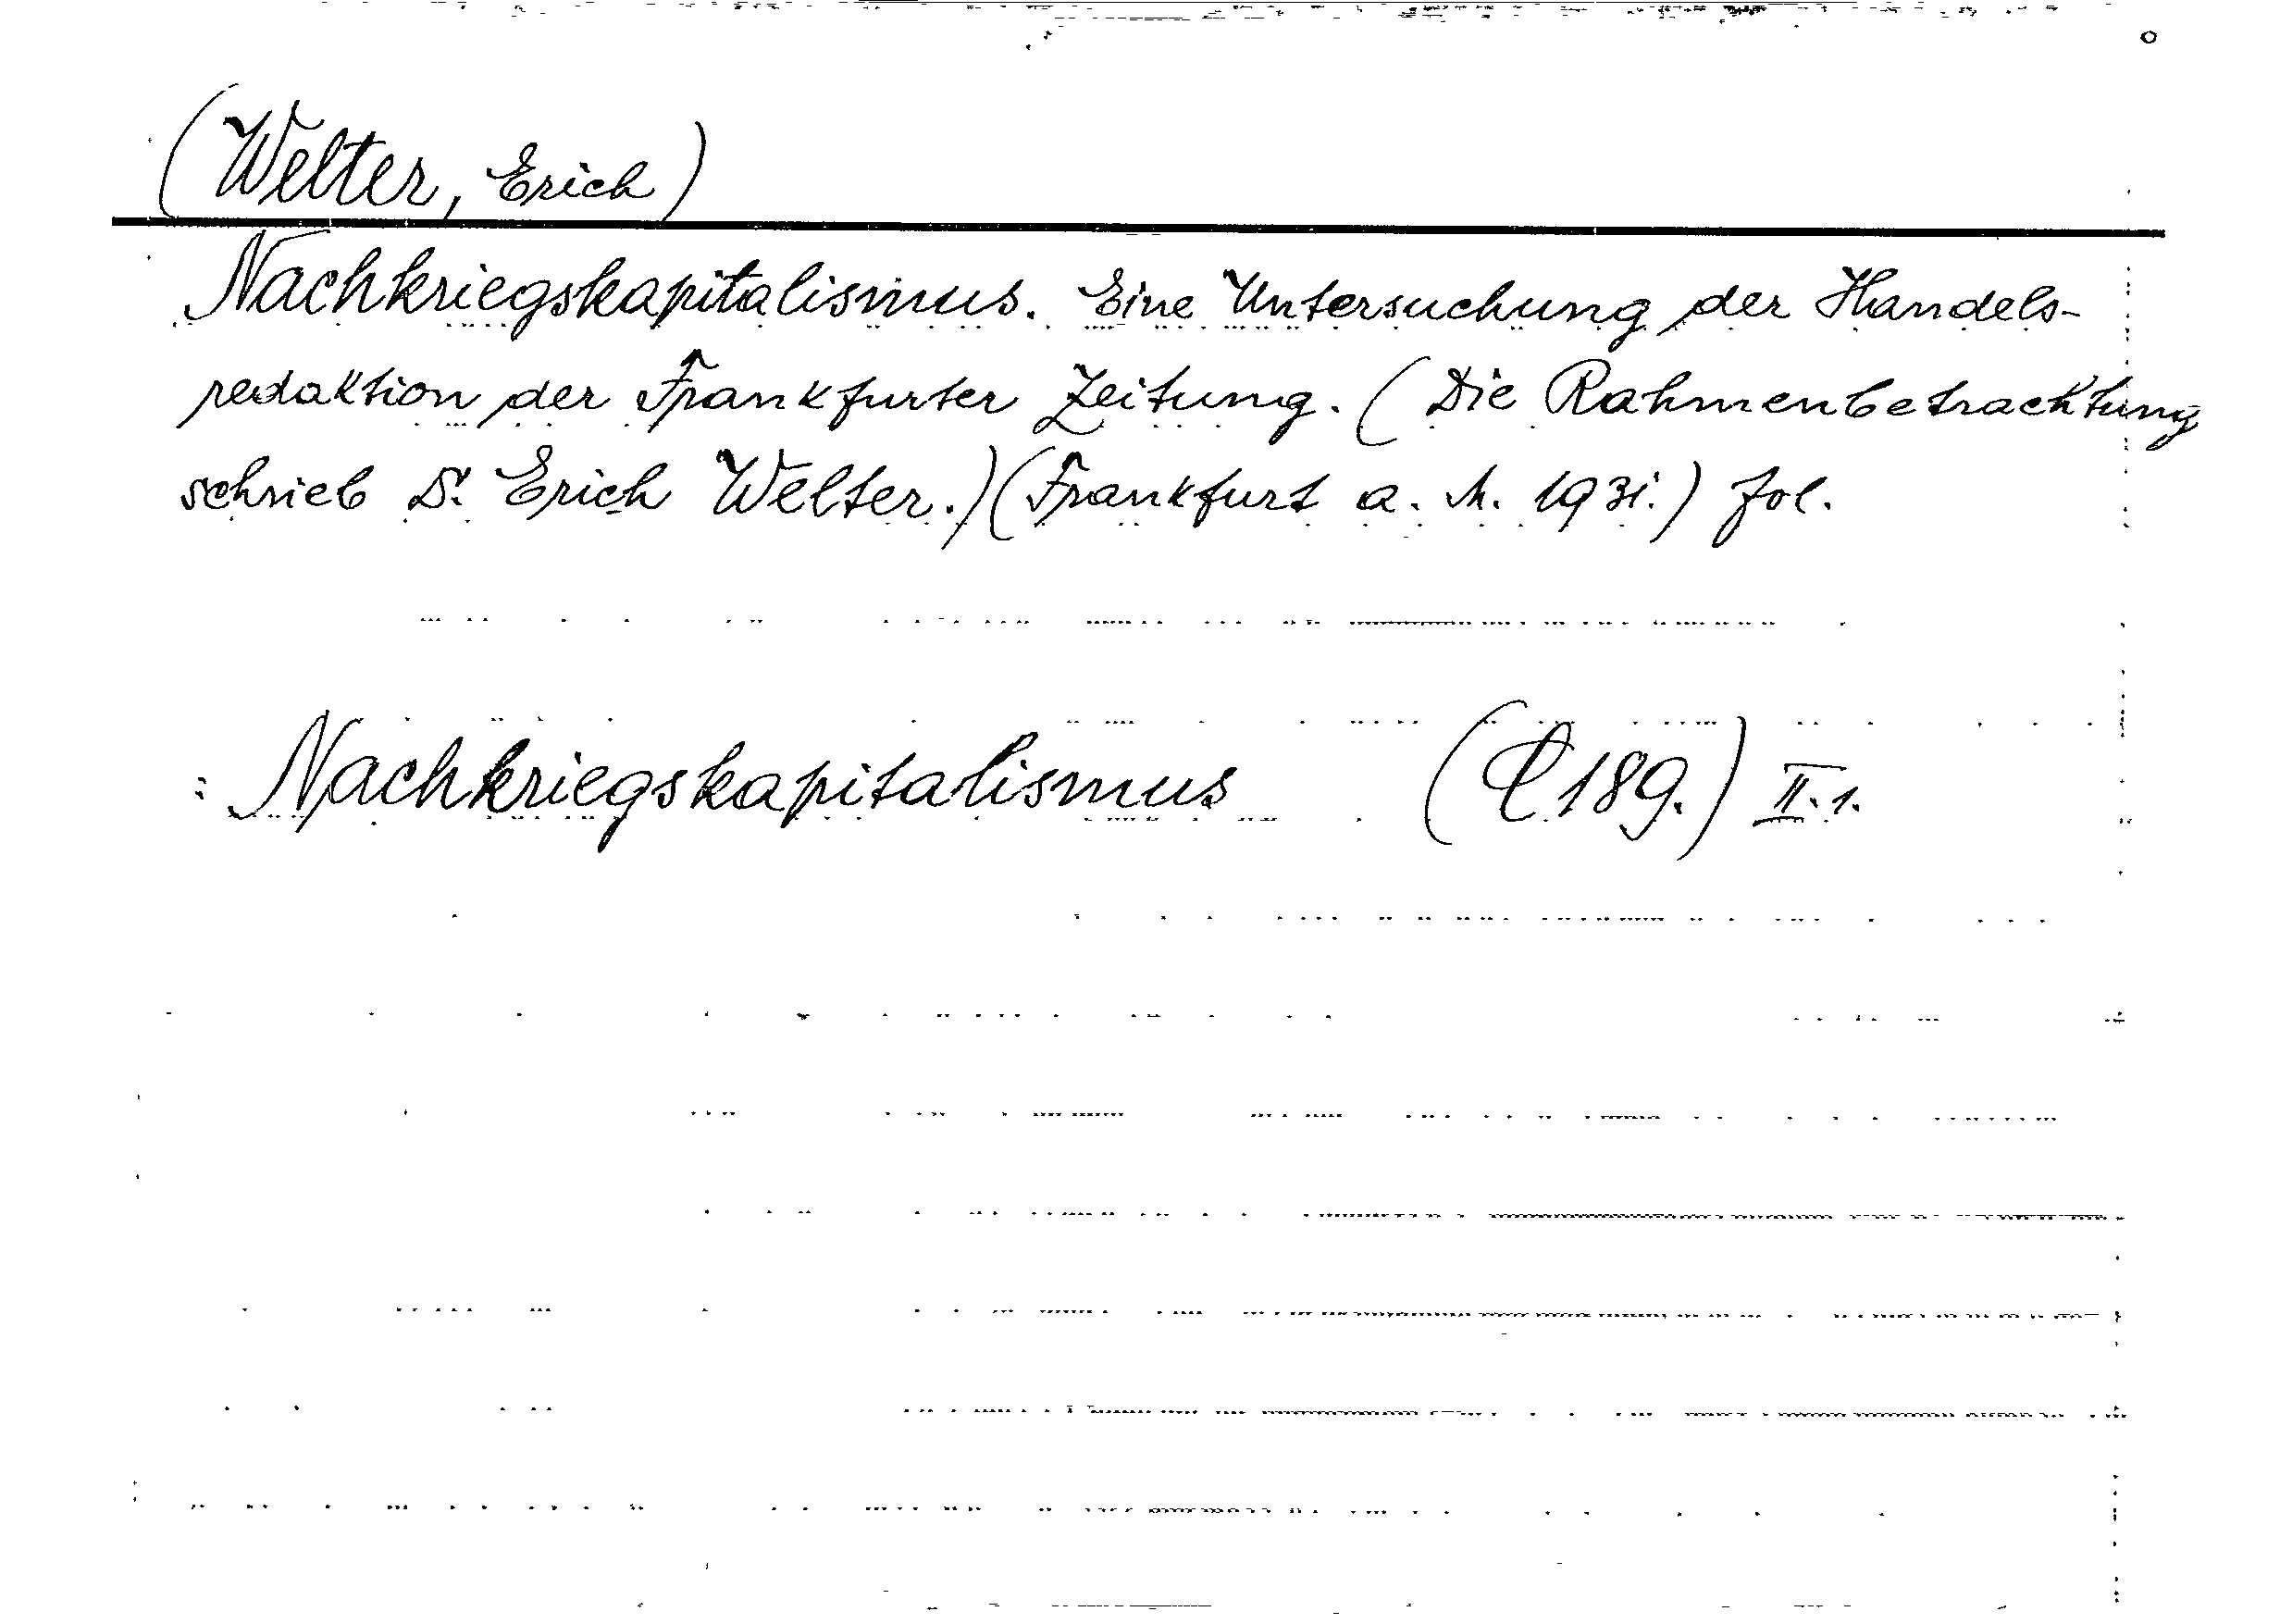 (Welter, Erich)
Nachkriegskapitalismus. Eine Untersuchung der Handels-
redaktion der Frankfurter Zeitung. (Die Rahmenbetrachtung
schrieb Dr. Erich Welter.) (Frankfurt a. M. 1931.) fol.
Nachkriegskapitalismus (189.) II.1.